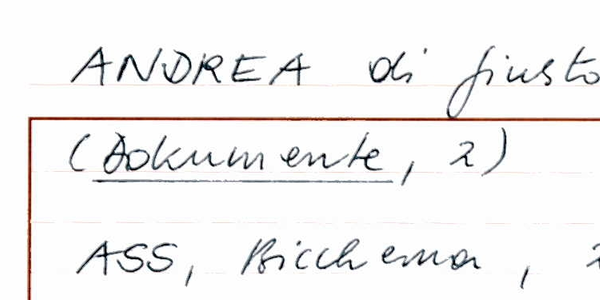 ANDREA di giusto
(Dokumente, 2)
ASS, Biccherna,